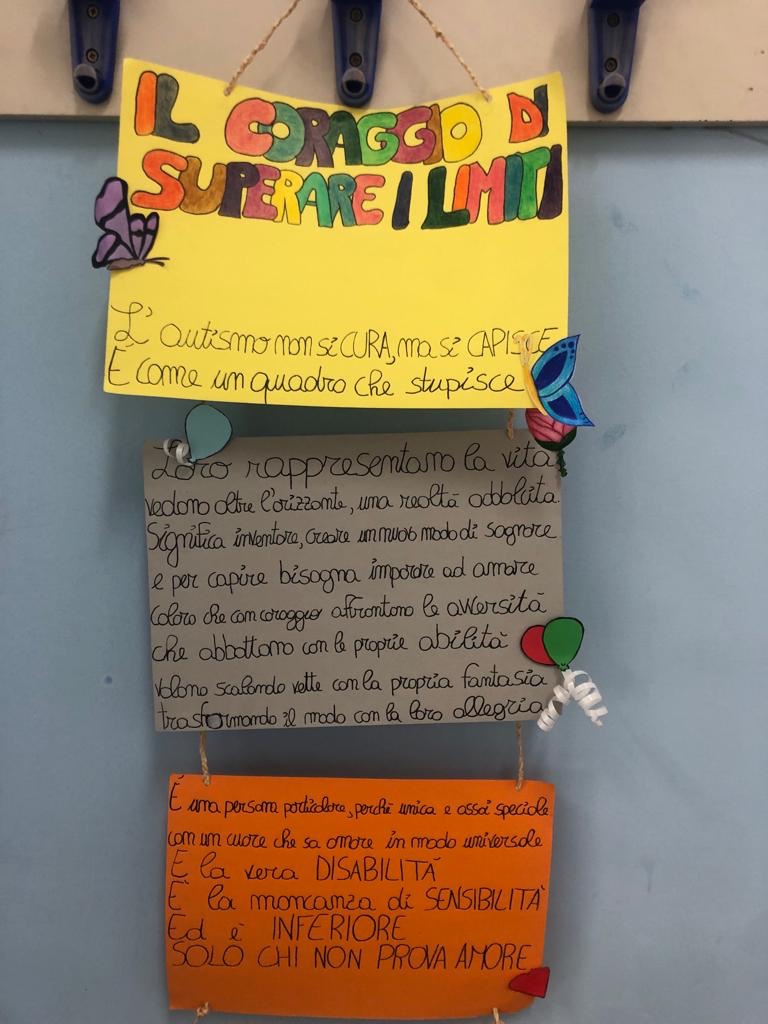 IL CORAGGIO DI
SUPERARE I LIMITI
L'autismo non si CURA, ma si CAPISCE
È come un quadro che stupisce
Loro rappresentano la vita
vedono oltre l'orizzonte, una realtà addolcita
Significa inventare, creare un nuovo modo di sognare
e per capire bisogna imparare ad amare
coloro che con coraggio affrontano le avversità
che abbattono con le proprie abilità
volano scalando vette con la propria fantasia
trasformando il modo con la loro allegria
È una persona particolare, perché unica e assai speciale
con un cuore che sa amare in modo universale
E la vera DISABILITÀ
E' la mancanza di SENSIBILITÀ
Ed è INFERIORE
SOLO CHI NON PROVA AMORE